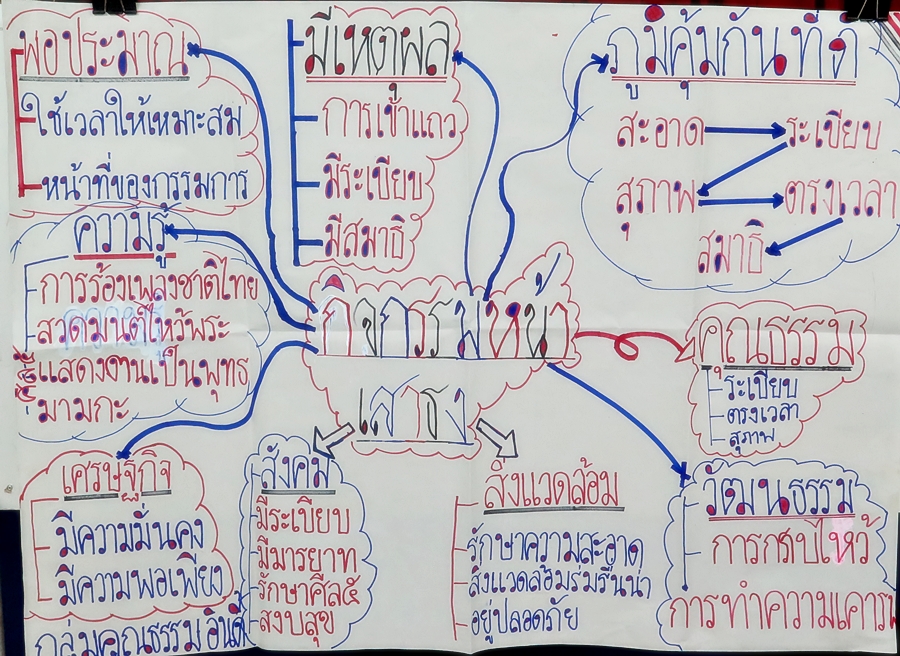 พอประมาณ
ใช้เวลาให้เหมาะสม
หน้าที่ของกรรมการ
มีเหตุผล
การเข้าแถว
มีระเบียบ
มีสมาธิ
ภูมิคุ้มกันที่ดี
สะอาด ระเบียบ
สุภาพ ตรงเวลา
สมาธิ
ความรู้
การร้องเพลงชาติไทย
สวดมนต์ไหว้พระ
แสดงงานเป็นพุทธ
มามกะ
กิจกรรมหน้า
เสาธง
คุณธรรม
ระเบียบ
ตรงเวลา
สุภาพ
เศรษฐกิจ
มีความมั่นคง
มีความพอเพียง
สังคม
มีระเบียบ
มีมารยาท
รักษาศีล๕
สงบสุข
สิ่งแวดล้อม
รักษาความสะอาด
สิ่งแวดล้อมร่มรื่นน่า
อยู่ปลอดภัย
วัฒนธรรม
การกราบไหว้
การทำความเคารพ
กลุ่มคุณธรรม